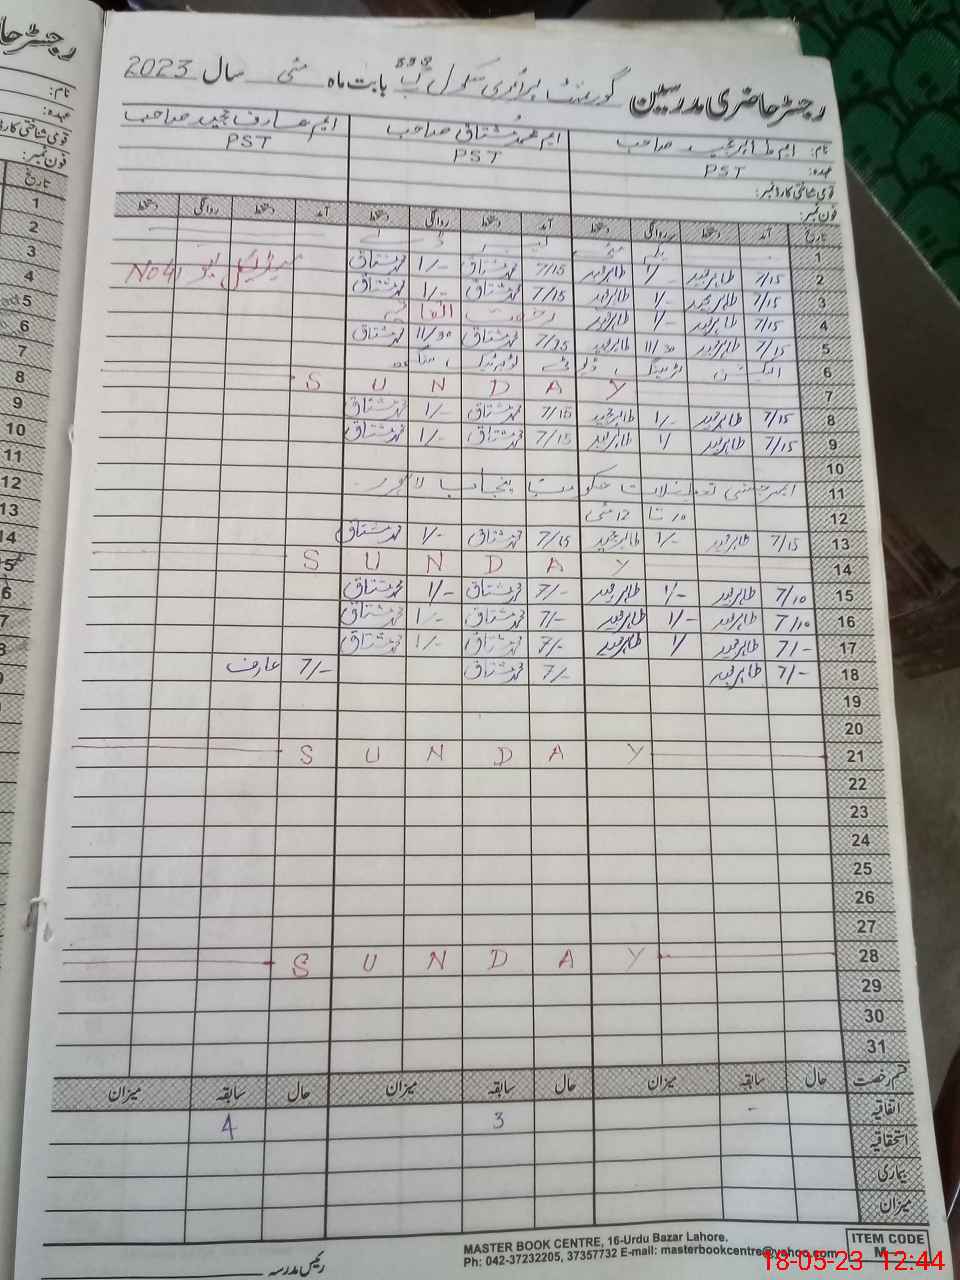 رجسٹر حاضری مدرسین گورنمنٹ پرائمری سکول بابت ماہ مئی سال 2023
نام: ایم طاہر مجید صاحب ایم محمد مشتاق صاحب ایم عارف مجید صاحب
عہدہ: PST PST PST
قومی شناختی کارڈ نمبر:
فون نمبر:
تاریخ آمد دستخط روانگی دستخط آمد دستخط روانگی دستخط آمد دستخط روانگی دستخط
1
2 7/15 طاہر مجید 1/- طاہر مجید 7/15 محمد مشتاق 1/- محمد مشتاق No 41
3 7/15 طاہر مجید 1/- طاہر مجید 7/15 محمد مشتاق 1/- محمد مشتاق
4 7/15 طاہر مجید 1/- طاہر مجید رخصت اتفاقیہ
5 7/15 طاہر مجید 11/30 طاہر مجید 7/15 محمد مشتاق 11/30 محمد مشتاق
6
7 S U N D A Y
8 7/15 طاہر مجید 1/- طاہر مجید 7/15 محمد مشتاق 1/- محمد مشتاق
9 7/15 طاہر مجید 1/ طاہر مجید 7/15 محمد مشتاق 1/- محمد مشتاق
10
11 ایمرجنسی تعطیلات حکومت پنجاب لاہور
12 10 تا 12 مئی
13 7/15 طاہر مجید 1/- طاہر مجید 7/15 محمد مشتاق 1/- محمد مشتاق
14 S U N D A Y
15 7/10 طاہر مجید 1/- طاہر مجید 7/- محمد مشتاق 1/- محمد مشتاق
16 7/10 طاہر مجید 1/- طاہر مجید 7/- محمد مشتاق 1/- محمد مشتاق
17 7/- طاہر مجید 1/ طاہر مجید 7/- محمد مشتاق 1/- محمد مشتاق
18 7/- طاہر مجید 7/- محمد مشتاق 7/- عارف
19
20
21 S U N D A Y
22
23
24
25
26
27
28 S U N D A Y
29
30
31
قسم رخصت حال سابقہ میزان حال سابقہ میزان حال سابقہ میزان
اتفاقیہ - 3 4
استحقاقیہ
بیماری
میزان
رئیس مدرسہ
MASTER BOOK CENTRE, 16-Urdu Bazar Lahore.
Ph: 042-37232205, 37357732 E-mail: masterbookcentre@yahoo.com
ITEM CODE
18-05-23 12:44
رجسٹر حا
نام:
عہدہ:
قومی شناختی کارڈ
فون نمبر:
تاریخ
1
2
3
4
5
6
7
8
9
10
11
12
13
14